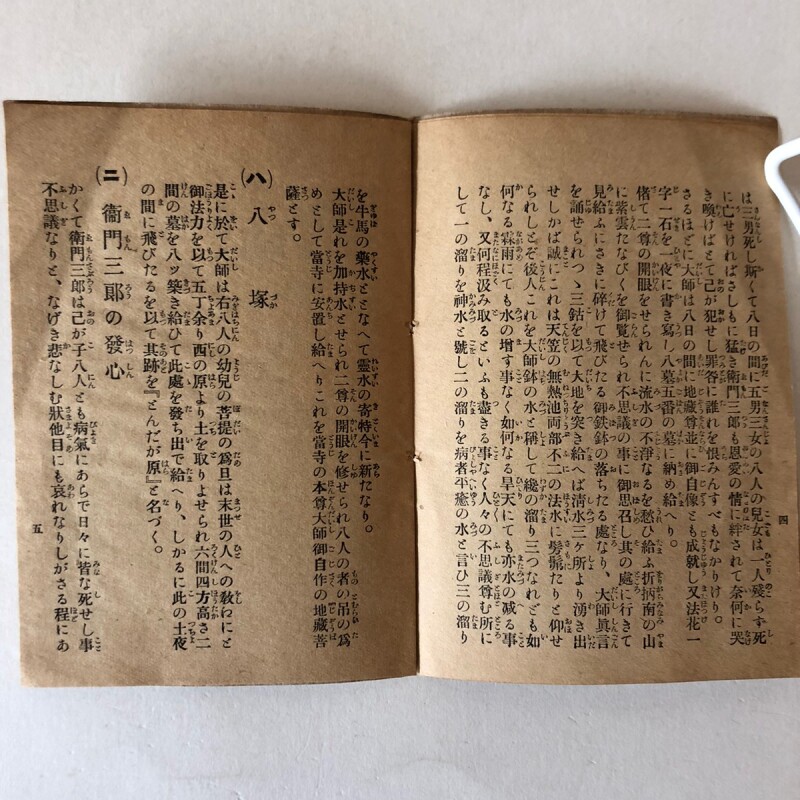 は三男死し斯くて八日の間に五男三女の八人の兒女は一人殘らず死
に亡せければさしもに猛き衞門三郎も恩愛の情に絆されて奈何に哭
き喚けばとて己が犯せし罪咎に誰れを恨みんすべもなかりけり。
さるほどに大師は八日の間に地藏尊並に御自像とも成就し又法花一
字一石を一夜に書き寫し八墓五番の墓に納め給へり。
偖て二尊の開眼をせられんに流水の不淨なるを愁ひ給ふ折柄南の山
に紫雲たなびくを御覽せられ不思議の事に御思召し其の處に行きて
見給ふにさきに碎けて飛びたる御鉄鉢の落ちたる處なり、大師眞言
を誦せられつゝ三鈷を以て大地を突き給へば淸水三ヶ所より湧き出
せしかば誠にこれは天笠の無熱池両部不二の法水に髣髴たりと仰せ
られしとぞ後人これを大師鉢の水と稱して纔の溜り三つなれども如
何なる霖雨にても水の增す事なく如何なる旱天にても亦水の减る事
なし、又何程汲み取るといふも盡きる事なく人々の不思議尊む所に
して一の溜りを神水と號し二の溜りを病者平癒の水と言ひ三の溜り
四
を牛馬の藥水ととなへて靈水の寄特今に新たなり。
大師是れを加持水とせられ二尊の開眼を修せられ八人の者の吊の爲
めとして當寺に安置し給へりこれを當寺の本尊大師御自作の地藏菩
薩とす。
(ハ) 八塚
是に於て大師は右八人の幼兒の菩提の爲旦は末世の人への敎わにと
御法力を以て五丁余り西の原より土を取りよせられ六間四方高さ二
間の墓を八ッ築き給ひて此處を發ち出で給へり、しかるに此の土夜
の間に飛びたるを以て其跡を『とんだが原』と名づく。
(ニ) 衞門三郎の發心
かくて衞門三郎は己が子八人とも病氣にあらで日々に皆な死せし事
不思議なりと、なげき悲なしむ狀他目にも哀れなりしがさる程にあ
五